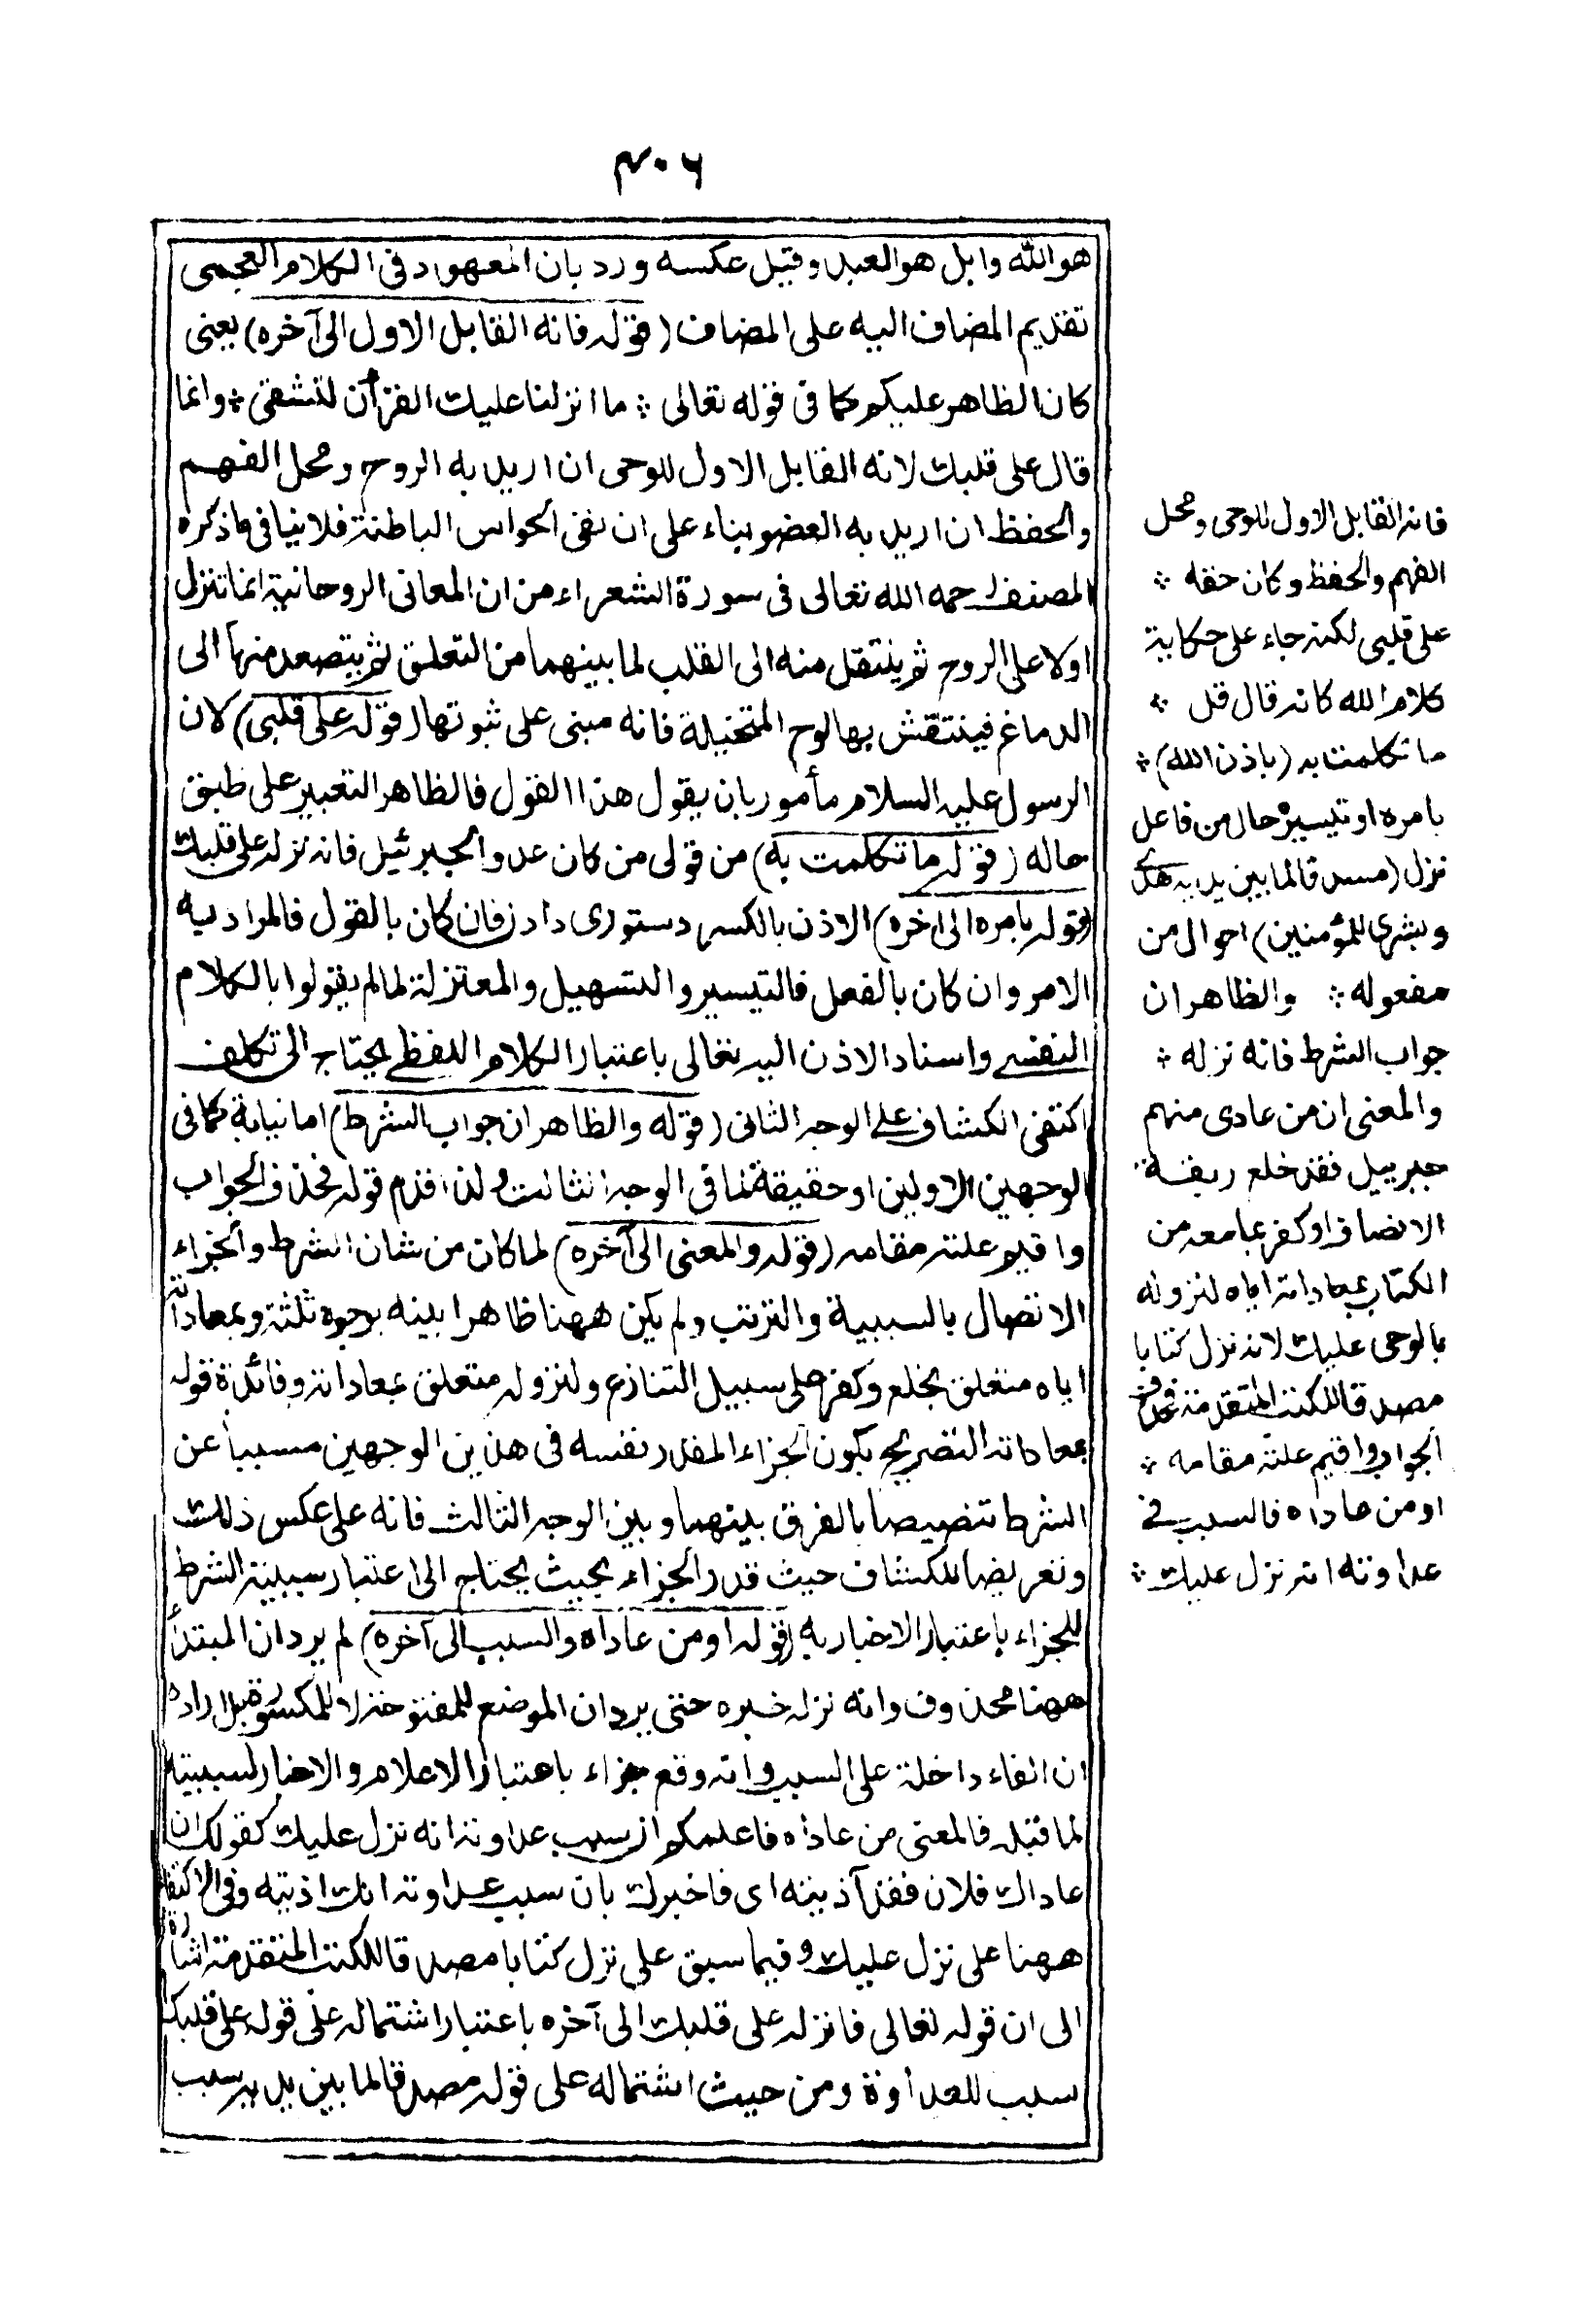 ۴۰۶
هو الله وابل هو العبد وقيل عكسه ورد بان المعهود فى الكلام العجمى
تقديم المضاف اليه على المضاف (قوله فانه القابل الاول الى آخره) يعنى
كان الظاهر عليكم كما فى قوله تعالى ؞ ما انزلنا عليك القرآن لتشقى ؞ وانما
قال على قلبك لانه القابل الاول للوحى ان اريد به الروح ومحل الفهم
والحفظ ان اريد به العضو بناء على ان نفى الحواس الباطنة فلا ينافى ما ذكره
المصنف رحمه الله تعالى فى سورة الشعراء من ان المعانى الروحانية انما تنزل
اولا على الروح ثم ينتقل منه الى القلب لما بينهما من التعلق ثم يتصعد منها الى
الدماغ فينتقش بها لوح المتخيلة فانه مبنى على ثبوتها (قوله على قلبى) لان
الرسول عليه السلام مأمور بان يقول هذا القول فالظاهر التعبير على طبق
حاله (قوله ما تكلمت به) من قولى من كان عدوا لجبرئيل فانه نزله على قلبك
(قوله بامره الى اخره) الاذن بالكسر دستورى دادن فان كان بالقول فالمراد به
الامر وان كان بالفعل فالتيسير والتسهيل والمعتزلة لما لم يقولوا بالكلام
النفسى واسناد الاذن اليه تعالى باعتبار الكلام اللفظى يحتاج الى تكلف
اكتفى الكشاف على الوجه الثانى (قوله والظاهر ان جواب الشرط) اما نيابة كما فى
الوجهين الاولين او حقيقة كما فى الوجه الثالث ولذا قدم قوله فحذف الجواب
واقيم علته مقامه (قوله والمعنى الى آخره) لما كان من شان الشرط والجزاء
الاتصال بالسببية والترتب ولم يكن ههنا ظاهرا بينه بوجوه ثلثة وبمعاداته
اياه متعلق بخلع وكفر على سبيل التنازع ولنزوله متعلق بمعاداته وفائدة قوله
بمعاداته التصريح بكون الجزاء المقدر نفسه فى هذين الوجهين مسببا عن
الشرط تنصيصا بالفرق بينهما وبين الوجه الثالث فانه على عكس ذلك
وتعريضا للكشاف حيث قدر الجزاء بحيث يحتاج الى اعتبار سببية الشرط
للجزاء باعتبار الاخبار به (قوله او من عاداه والسبب الى آخره) لم يرد ان المبتدأ
ههنا محذوف وانه نزله خبره حتى يرد ان الموضع للمفتوحة لا للمكسورة بل اراد
ان الفاء داخلة على السبب وانه وقع جزاء باعتبار الاعلام والاخبار لسببيته
لما قبله فالمعنى من عاداه فاعلمكم ان سبب عداوته انه نزل عليك كقولك ان
عاداك فلان فقد آذيته اى فاخبرك بان سبب عداوته انك اذيته وفى الاكتفاء
ههنا على نزل عليك وفيما سبق على نزل كتابا مصدقا للكتب المتقدمة اشارة
الى ان قوله تعالى فانزله على قلبك الى آخره باعتبار اشتماله على قوله على قلبك
سبب للعداوة ومن حيث اشتماله على قوله مصدقا لما بين يديه سبب
فانه القابل الاول للوحى ومحل
الفهم والحفظ وكان حقه ؞
على قلبى لكنه جاء على حكاية
كلام الله كانه قال قل ؞
ما تكلمت به (باذن الله) ؞
بامره او تيسيره حال من فاعل
نزل (مصدقا لما بين يديه وهدى
وبشرى للمؤمنين) احوال من
مفعوله ؞ والظاهر ان
جواب الشرط فانه نزله ؞
والمعنى ان من عادى منهم
جبرييل فقد خلع ربقة
الانصاف او كفر بما معه من
الكتاب بمعاداته اياه لنزوله
بالوحى عليك لانه نزل كتابا
مصدقا للكتب المتقدمة فحذف
الجواب واقيم علته مقامه ؞
او من عاداه فالسبب فى
عداوته انه نزل عليك ؞